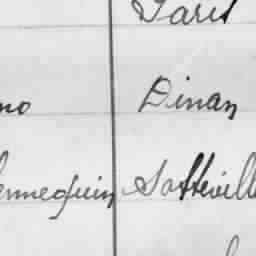 Paris
no Dinan
ennequin Sotteville